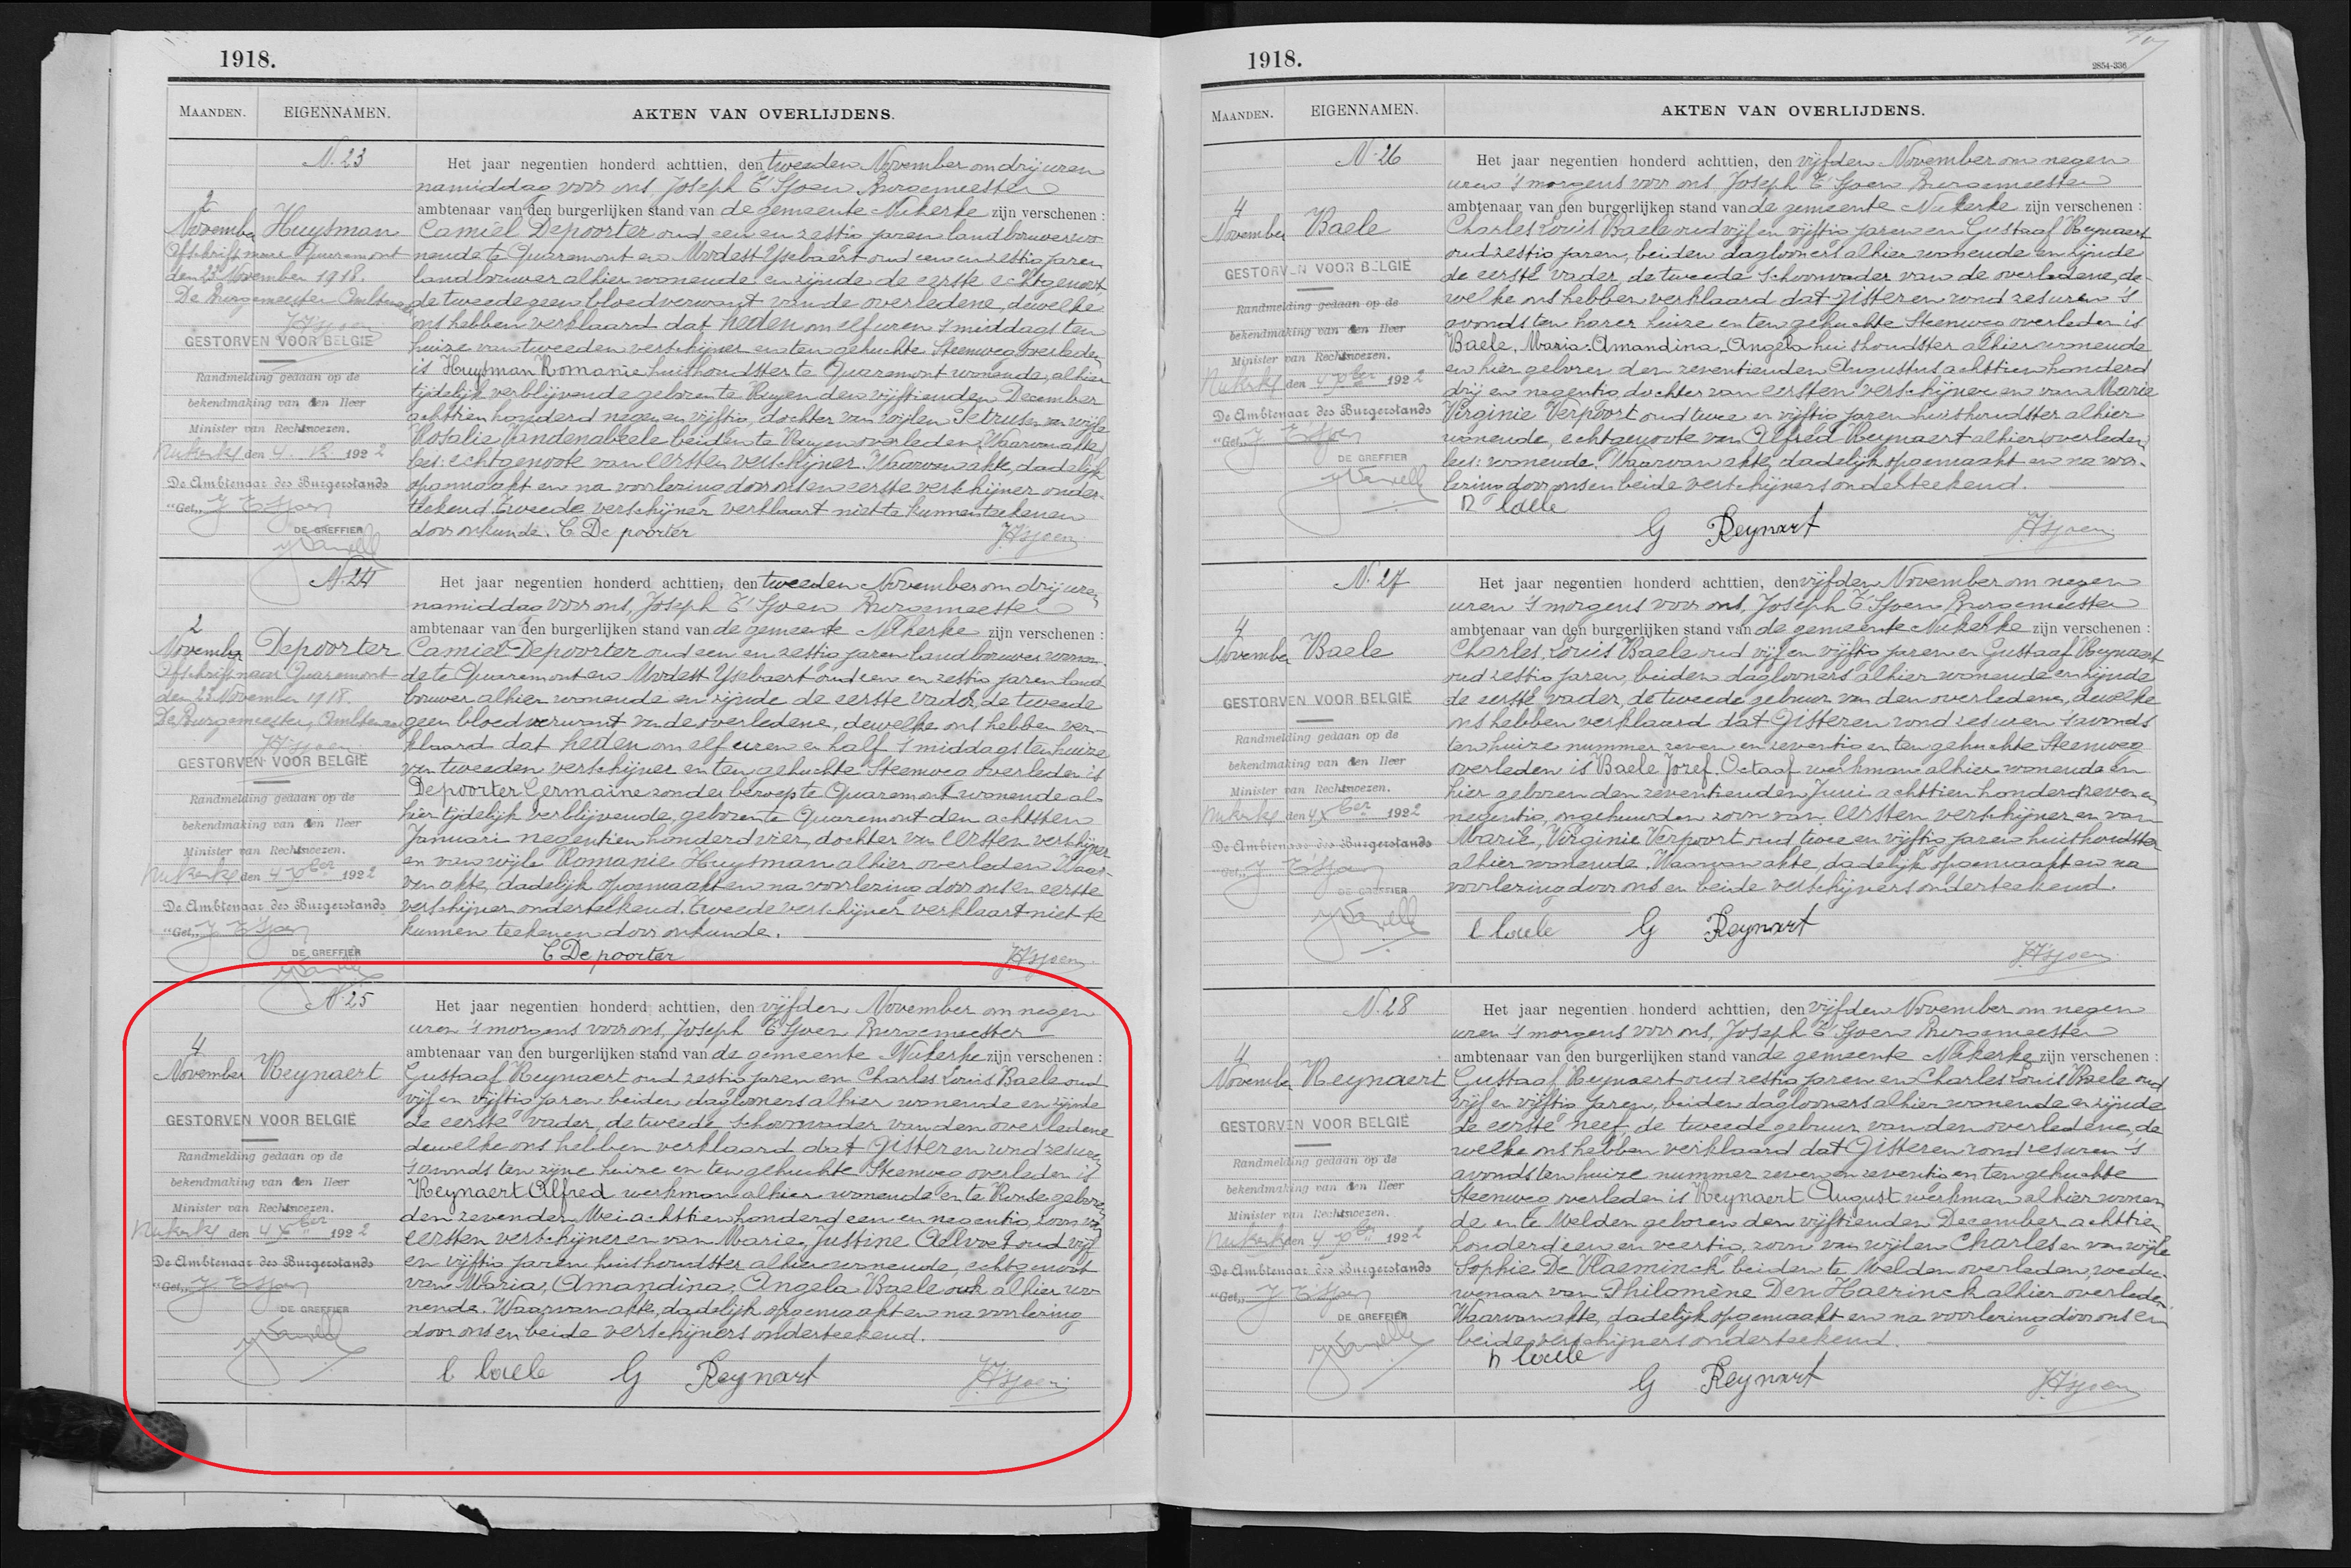 1918.
MAANDEN. EIGENNAMEN. AKTEN VAN OVERLIJDENS.
N. 23
Het jaar negentien honderd achttien, den tweeden November om drij uren
namiddag voor ons, Joseph T'Sjoen Burgemeester
ambtenaar van den burgerlijken stand van de gemeente Nukerke zijn verschenen :
2
November Huysman
Afschrift naar Quaremont
den 23 November 1918.
De Burgemeester
GESTORVEN VOOR BELGIË
Randmelding gedaan op de
bekendmaking van den Heer
Minister van Rechtwezen.
Nukerke den 4 1922
De Ambtenaar des Burgerstands
"Get,, J T'Sjoen
DE GREFFIER
Camiel Depoorter oud een en zestig jaren landbouwer wo-
nende te Quaremont en Modest Ysebaert oud een en zestig jaren
landbouwer alhier wonende en zijnde de eerste echtgenoot
de tweede geen bloedverwant van de overledene, dewelke
ons hebben verklaard dat heden om elf uren 's middags ten
huize van tweeden verschijner en ten gehuchte Steenweg overleden
is Huysman Romanie huishoudster te Quaremont wonende, alhier
tijdelijk verblijvende geboren te Ruyen den vijftienden December
achttien honderd negen en vijftig, dochter van wijlen Petrus en van wijle
Rosalie Vandenabeele beiden te Ruyen overleden Waarvan akte
lees: echtgenoote van eersten verschijner. Waarvan akte, dadelijk
opgemaakt en na voorlezing door ons en eerste verschijner onder-
teekend. Tweede verschijner verklaart niet te kunnen teekenen
door onkunde. C De poorter
N. 24
Het jaar negentien honderd achttien, den tweeden November om drij uren
namiddag voor ons, Joseph T'Sjoen Burgemeester
ambtenaar van den burgerlijken stand van de gemeente Nukerke zijn verschenen :
2
November Depoorter
Afschrift naar Quaremont
den 23 November 1918.
De Burgemeester,
GESTORVEN VOOR BELGIË
Randmelding gedaan op de
bekendmaking van den Heer
Minister van Rechtwezen.
Nukerke den 4 Xber 1922
De Ambtenaar des Burgerstands
"Get,, J T'Sjoen
DE GREFFIER
Camiel Depoorter oud een en zestig jaren landbouwer wonen-
de te Quaremont en Modest Ysebaert oud een en zestig jaren land-
bouwer alhier wonende en zijnde de eerste vader, de tweede
geen bloedverwant van de overledene, dewelke ons hebben ver-
klaard dat heden om elf uren en half 's middags ten huize
van tweeden verschijner en ten gehuchte Steenweg overleden is
Depoorter Germaine zonder beroep te Quaremont wonende al-
hier tijdelijk verblijvende, geboren te Quaremont den achtsten
Januari negentien honderd vier, dochter van eersten verschijner
en van wijle Romanie Huysman alhier overleden Waar-
van akte, dadelijk opgemaakt en na voorlezing door ons en eerste
verschijner onderteekend. Tweede verschijner verklaart niet te
kunnen teekenen door onkunde.
C De poorter
N. 25
Het jaar negentien honderd achttien, den vijfden November om negen
uren 's morgens voor ons, Joseph T'Sjoen Burgemeester
ambtenaar van den burgerlijken stand van de gemeente Nukerke zijn verschenen :
4
November Reynaert
GESTORVEN VOOR BELGIË
Randmelding gedaan op de
bekendmaking van den Heer
Minister van Rechtwezen.
Nukerke den 4 Xber 1922
De Ambtenaar des Burgerstands
"Get,, J T'Sjoen
DE GREFFIER
Gustaaf Reynaert oud zestig jaren en Charles Louis Baele oud
vijf en vijftig jaren beiden daglooners alhier wonende en zijnde
de eerste vader, de tweede schoonvader van den overledene
dewelke ons hebben verklaard dat gisteren rond zes uren
's avonds ten zijne huize en ten gehuchte Steenweg overleden is
Reynaert Alfred werkman alhier wonende en te Ronse geboren
den zevenden Mei achttien honderd een en negentig, zoon van
eersten verschijner en van Marie, Justine Aelvoet oud vijf
en vijftig jaren huishoudster alhier wonende, echtgenoot
van Maria, Amandina, Angela Baele ook alhier wo-
nende. Waarvan akte, dadelijk opgemaakt en na voorlezing
door ons en beide verschijners onderteekend.
C baele G Reynart
1918.
2854-336
MAANDEN. EIGENNAMEN. AKTEN VAN OVERLIJDENS.
N. 26
Het jaar negentien honderd achttien, den vijfden November om negen
uren 's morgens voor ons Joseph T'Sjoen Burgemeester
ambtenaar van den burgerlijken stand van de gemeente Nukerke zijn verschenen :
4
November Baele
GESTORVEN VOOR BELGIË
Randmelding gedaan op de
bekendmaking van den Heer
Minister van Rechtwezen.
Nukerke den 4 Xber 1922
De Ambtenaar des Burgerstands
"Get,, J T'Sjoen
DE GREFFIER
Charles Louis Baele oud vijf en vijftig jaren en Gustaaf Reynaert
oud zestig jaren, beiden daglooners alhier wonende en zijnde
de eerste vader, de tweede schoonvader van de overledene, de-
welke ons hebben verklaard dat gisteren rond zes uren 's
avonds ten harer huize en ten gehuchte Steenweg overleden is
Baele, Maria-Amandina-Angela huishoudster alhier wonende
en hier geboren den zeventienden Augustus achttien honderd
drij en negentig, dochter van eersten verschijner en van Marie
Virginie Verpoort oud twee en vijftig jaren huishoudster alhier
wonende, echtgenoote van Alfred Reynaert alhier overleden
lees: wonende. Waarvan akte, dadelijk opgemaakt en na voor-
lezing door ons en beide verschijners onderteekend.
baele
G Reynart
N. 27
Het jaar negentien honderd achttien, den vijfden November om negen
uren 's morgens voor ons, Joseph T'Sjoen Burgemeester
ambtenaar van den burgerlijken stand van de gemeente Nukerke zijn verschenen :
4
November Baele
GESTORVEN VOOR BELGIË
Randmelding gedaan op de
bekendmaking van den Heer
Minister van Rechtwezen.
Nukerke den 4 Xber 1922
De Ambtenaar des Burgerstands
"Get,, J T'Sjoen
DE GREFFIER
Charles, Louis Baele oud vijf en vijftig jaren en Gustaaf Reynaert
oud zestig jaren, beiden daglooners alhier wonende en zijnde
de eerste vader, de tweede gebuur van den overledene, dewelke
ons hebben verklaard dat gisteren rond zes uren 's avonds
ten huize nummer zeven en zeventig en ten gehuchte Steenweg
overleden is Baele Jozef. Octaaf werkman alhier wonende en
hier geboren den zeventienden Juni achttien honderd zeven en
negentig, ongehuwden zoon van eersten verschijner en van
Marie, Virginie Verpoort oud twee en vijftig jaren huishoudster
alhier wonende. Waarvan akte, dadelijk opgemaakt en na
voorlezing door ons en beide verschijners onderteekend.
C baele G Reynart
N. 28
Het jaar negentien honderd achttien, den vijfden November om negen
uren 's morgens voor ons, Joseph T'Sjoen Burgemeester
ambtenaar van den burgerlijken stand van de gemeente Nukerke zijn verschenen :
4
November Reynaert
GESTORVEN VOOR BELGIË
Randmelding gedaan op de
bekendmaking van den Heer
Minister van Rechtwezen.
Nukerke den 4 Xber 1922
De Ambtenaar des Burgerstands
"Get,, J T'Sjoen
DE GREFFIER
Gustaaf Reynaert oud zestig jaren en Charles Louis Baele oud
vijf en vijftig jaren, beiden daglooners alhier wonende en zijnde
de eerste neef, de tweede gebuur van den overledene, de
welke ons hebben verklaard dat gisteren rond zes uren 's
avonds ten huize nummer zeven en zeventig en ten gehuchte
Steenweg overleden is Reynaert August werkman alhier wonen
de en te Melden geboren den vijftienden December achttien
honderd een en veertig, zoon van wijlen Charles en van wijle
Sophie De Vlaeminck beiden te Melden overleden, wedu-
wenaar van Philomène Den Haerinck alhier overleden.
Waarvan akte, dadelijk opgemaakt en na voorlezing door ons en
beide verschijners onderteekend.
baele
G Reynart